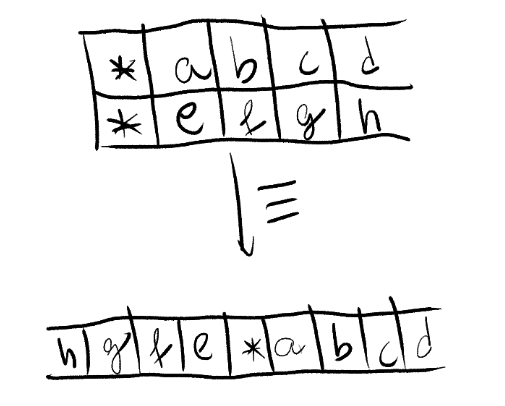 * a b c d
* e f g h
≡
h g f e * a b c d